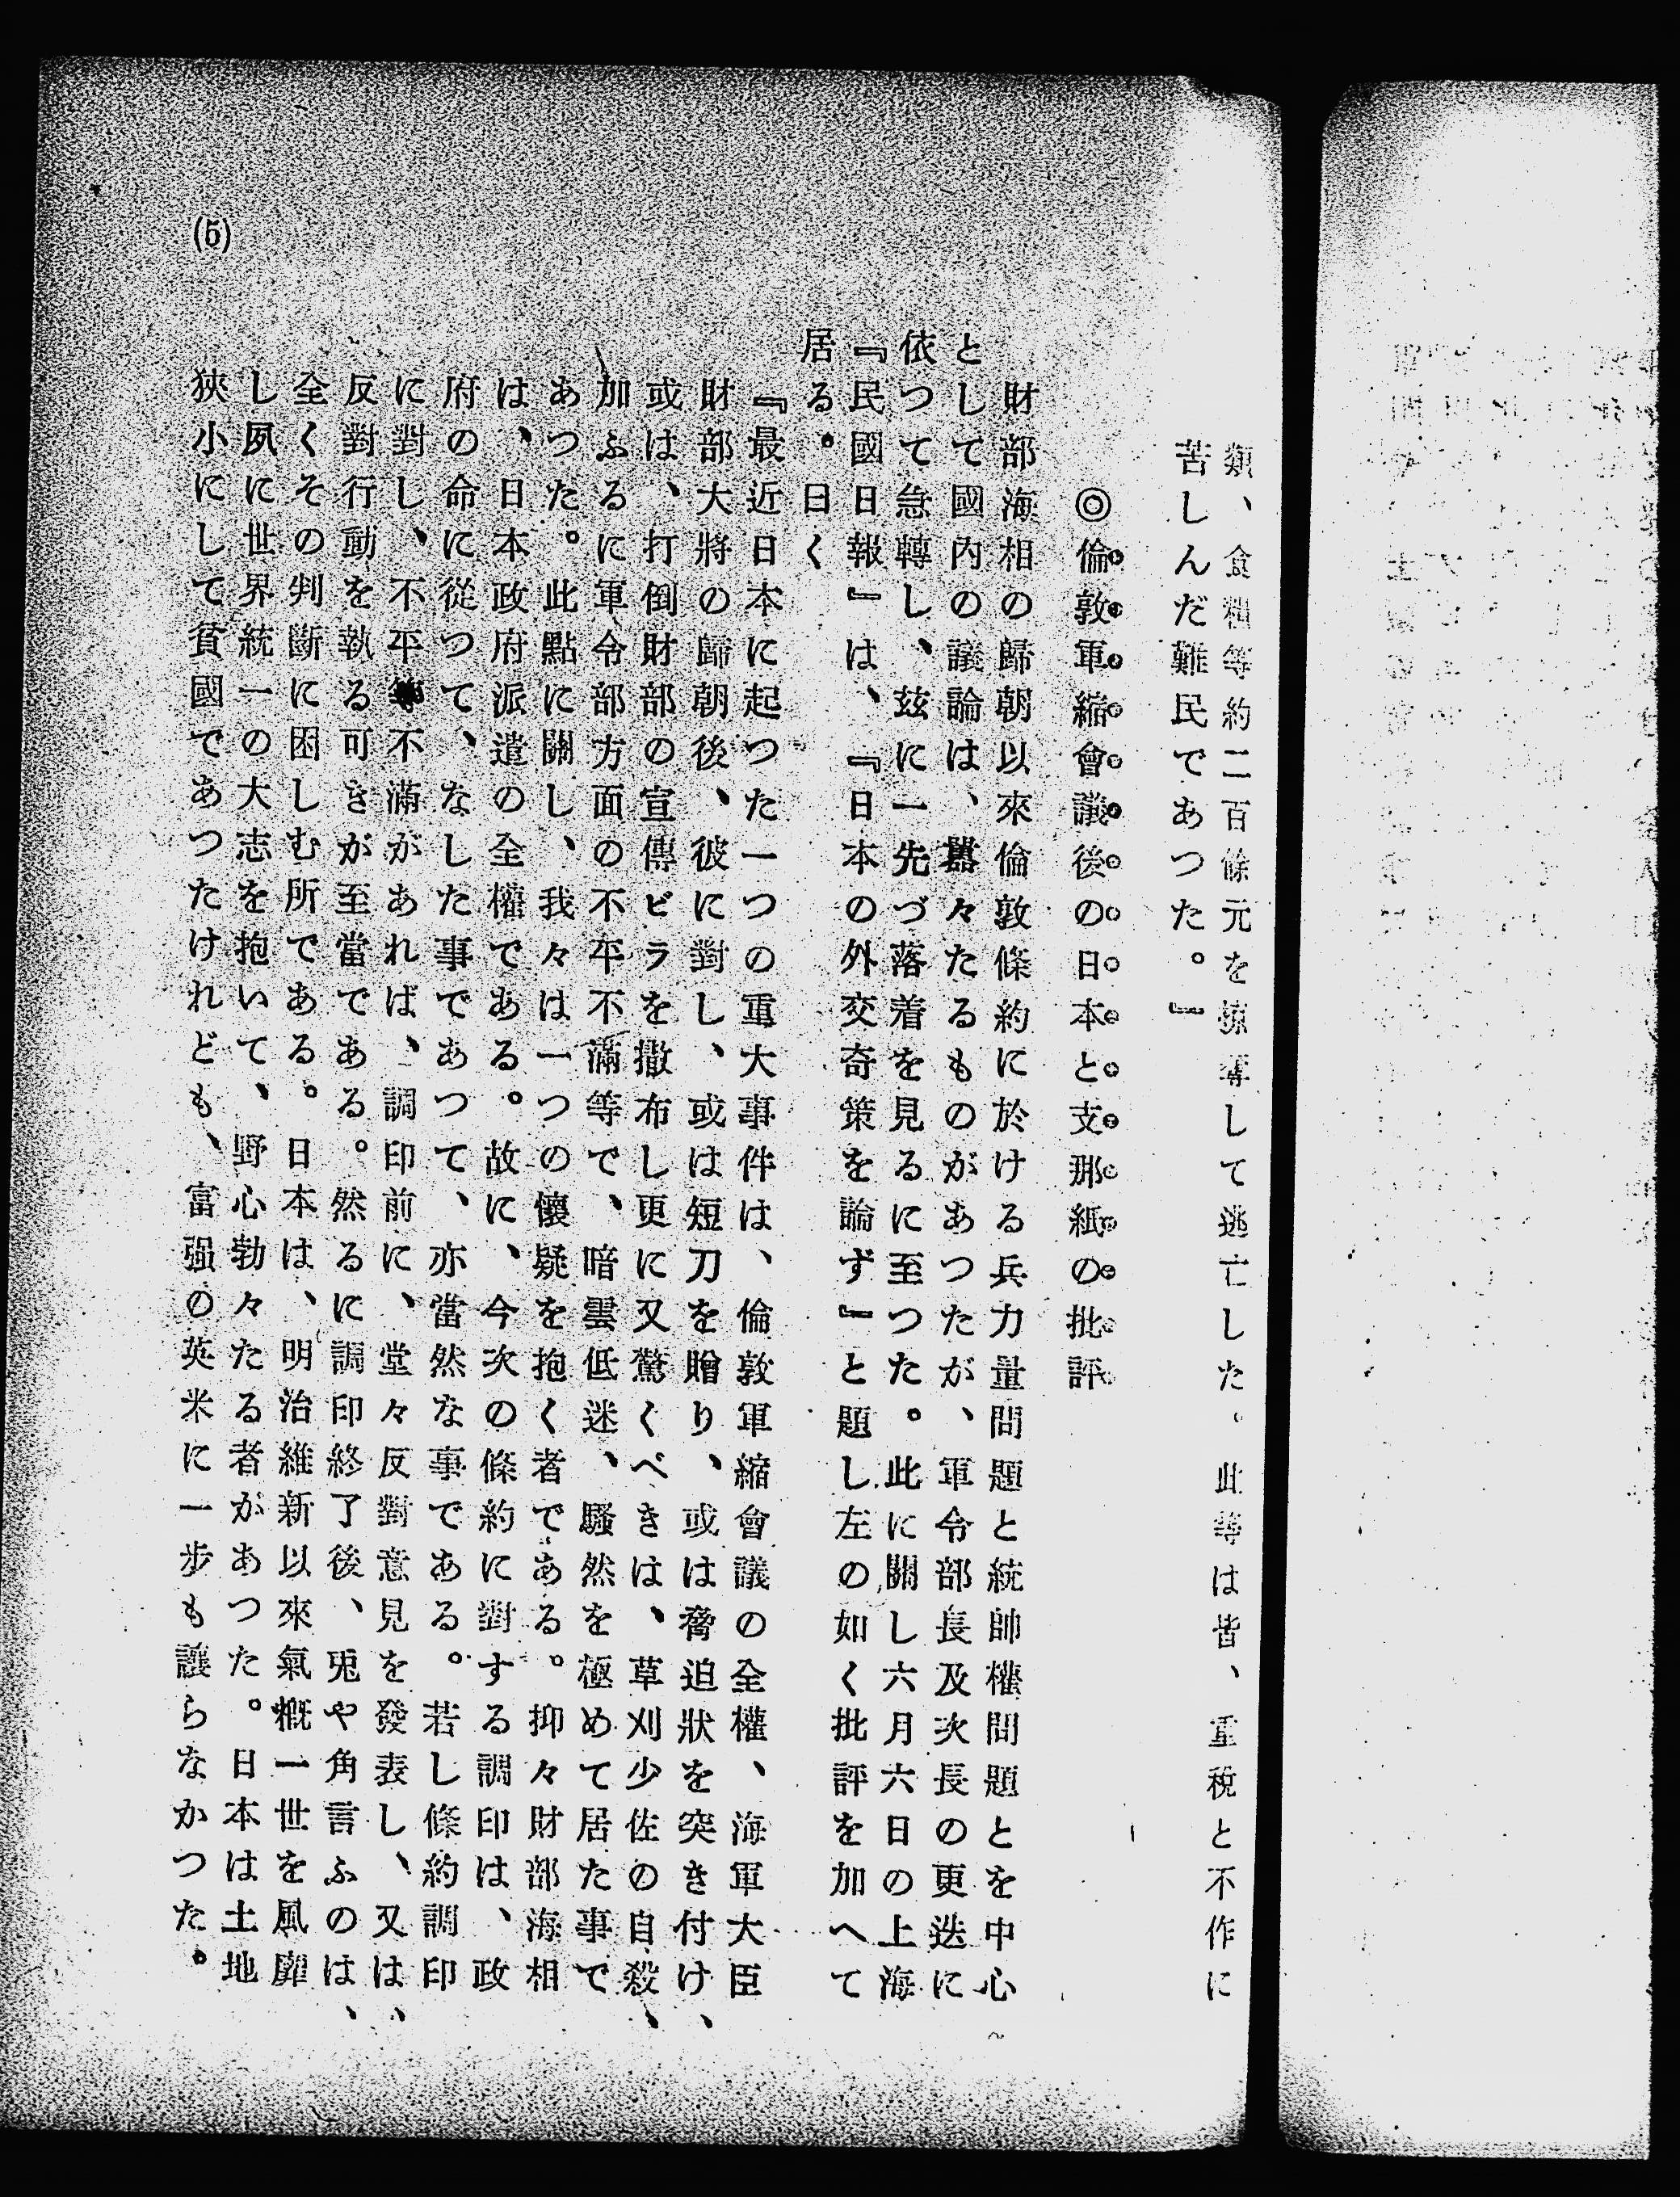 類、食糧等約二百餘元を掠奪して逃亡した。此等は皆、重稅と不作に
苦しんだ難民であつた。』
◎倫敦軍縮會議後の日本と支那紙の批評
財部海相の歸朝以來倫敦條約に於ける兵力量問題と統帥權問題とを中心
として國內の議論は、囂々たるものがあつたが、軍令部長及次長の更迭に
依つて急轉し、茲に一先づ落着を見るに至つた。此に關し六月六日の上海
『民國日報』は、『日本の外交奇策を論ず』と題し左の如く批評を加へて
居る。曰く
『最近日本に起つた一つの重大事件は、倫敦軍縮會議の全權、海軍大臣
財部大將の歸朝後、彼に對し、或は短刀を贈り、或は脅迫狀を突き付け、
或は、打倒財部の宣傳ビラを撒布し更に又驚くべきは、草刈少佐の自殺、
加ふるに軍令部方面の不平不滿等で、暗雲低迷、騷然を極めて居た事で
あつた。此點に關し、我々は一つの懷疑を抱く者である。抑々財部海相
は、日本政府派遣の全權である。故に、今次の條約に對する調印は、政
府の命に從つて、なした事であつて、亦當然な事である。若し條約調印
に對し、不平不滿があれば、調印前に、堂々反對意見を發表し、又は、
反對行動を執る可きが至當である。然るに調印終了後、兎や角言ふのは、
全くその判斷に困しむ所である。日本は、明治維新以來氣槪一世を風靡
し夙に世界統一の大志を抱いて、野心勃々たる者があつた。日本は土地
狹小にして貧國であつたけれども、富强の英米に一步も讓らなかつた。
(5)